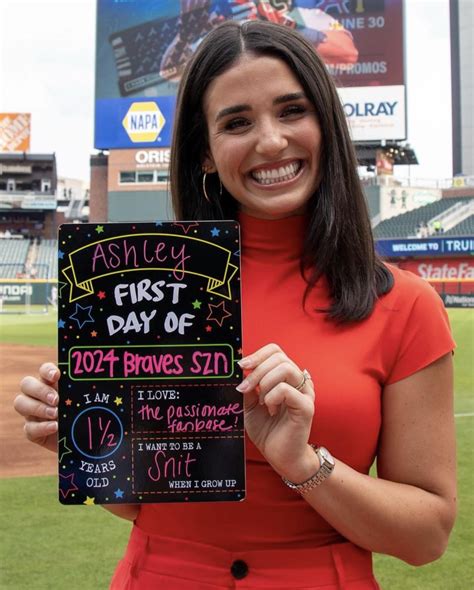 JUNE 30
M/PROMOS
NAPA
ORIS
OLRAY
WELCOME TO TRUI
State Farm
Ashley
FIRST
DAY OF
2024 BRAVES SZN
I AM
1½
YEARS
OLD
I LOVE:
the passionate
fanbase!
I WANT TO BE A
Snit
WHEN I GROW UP